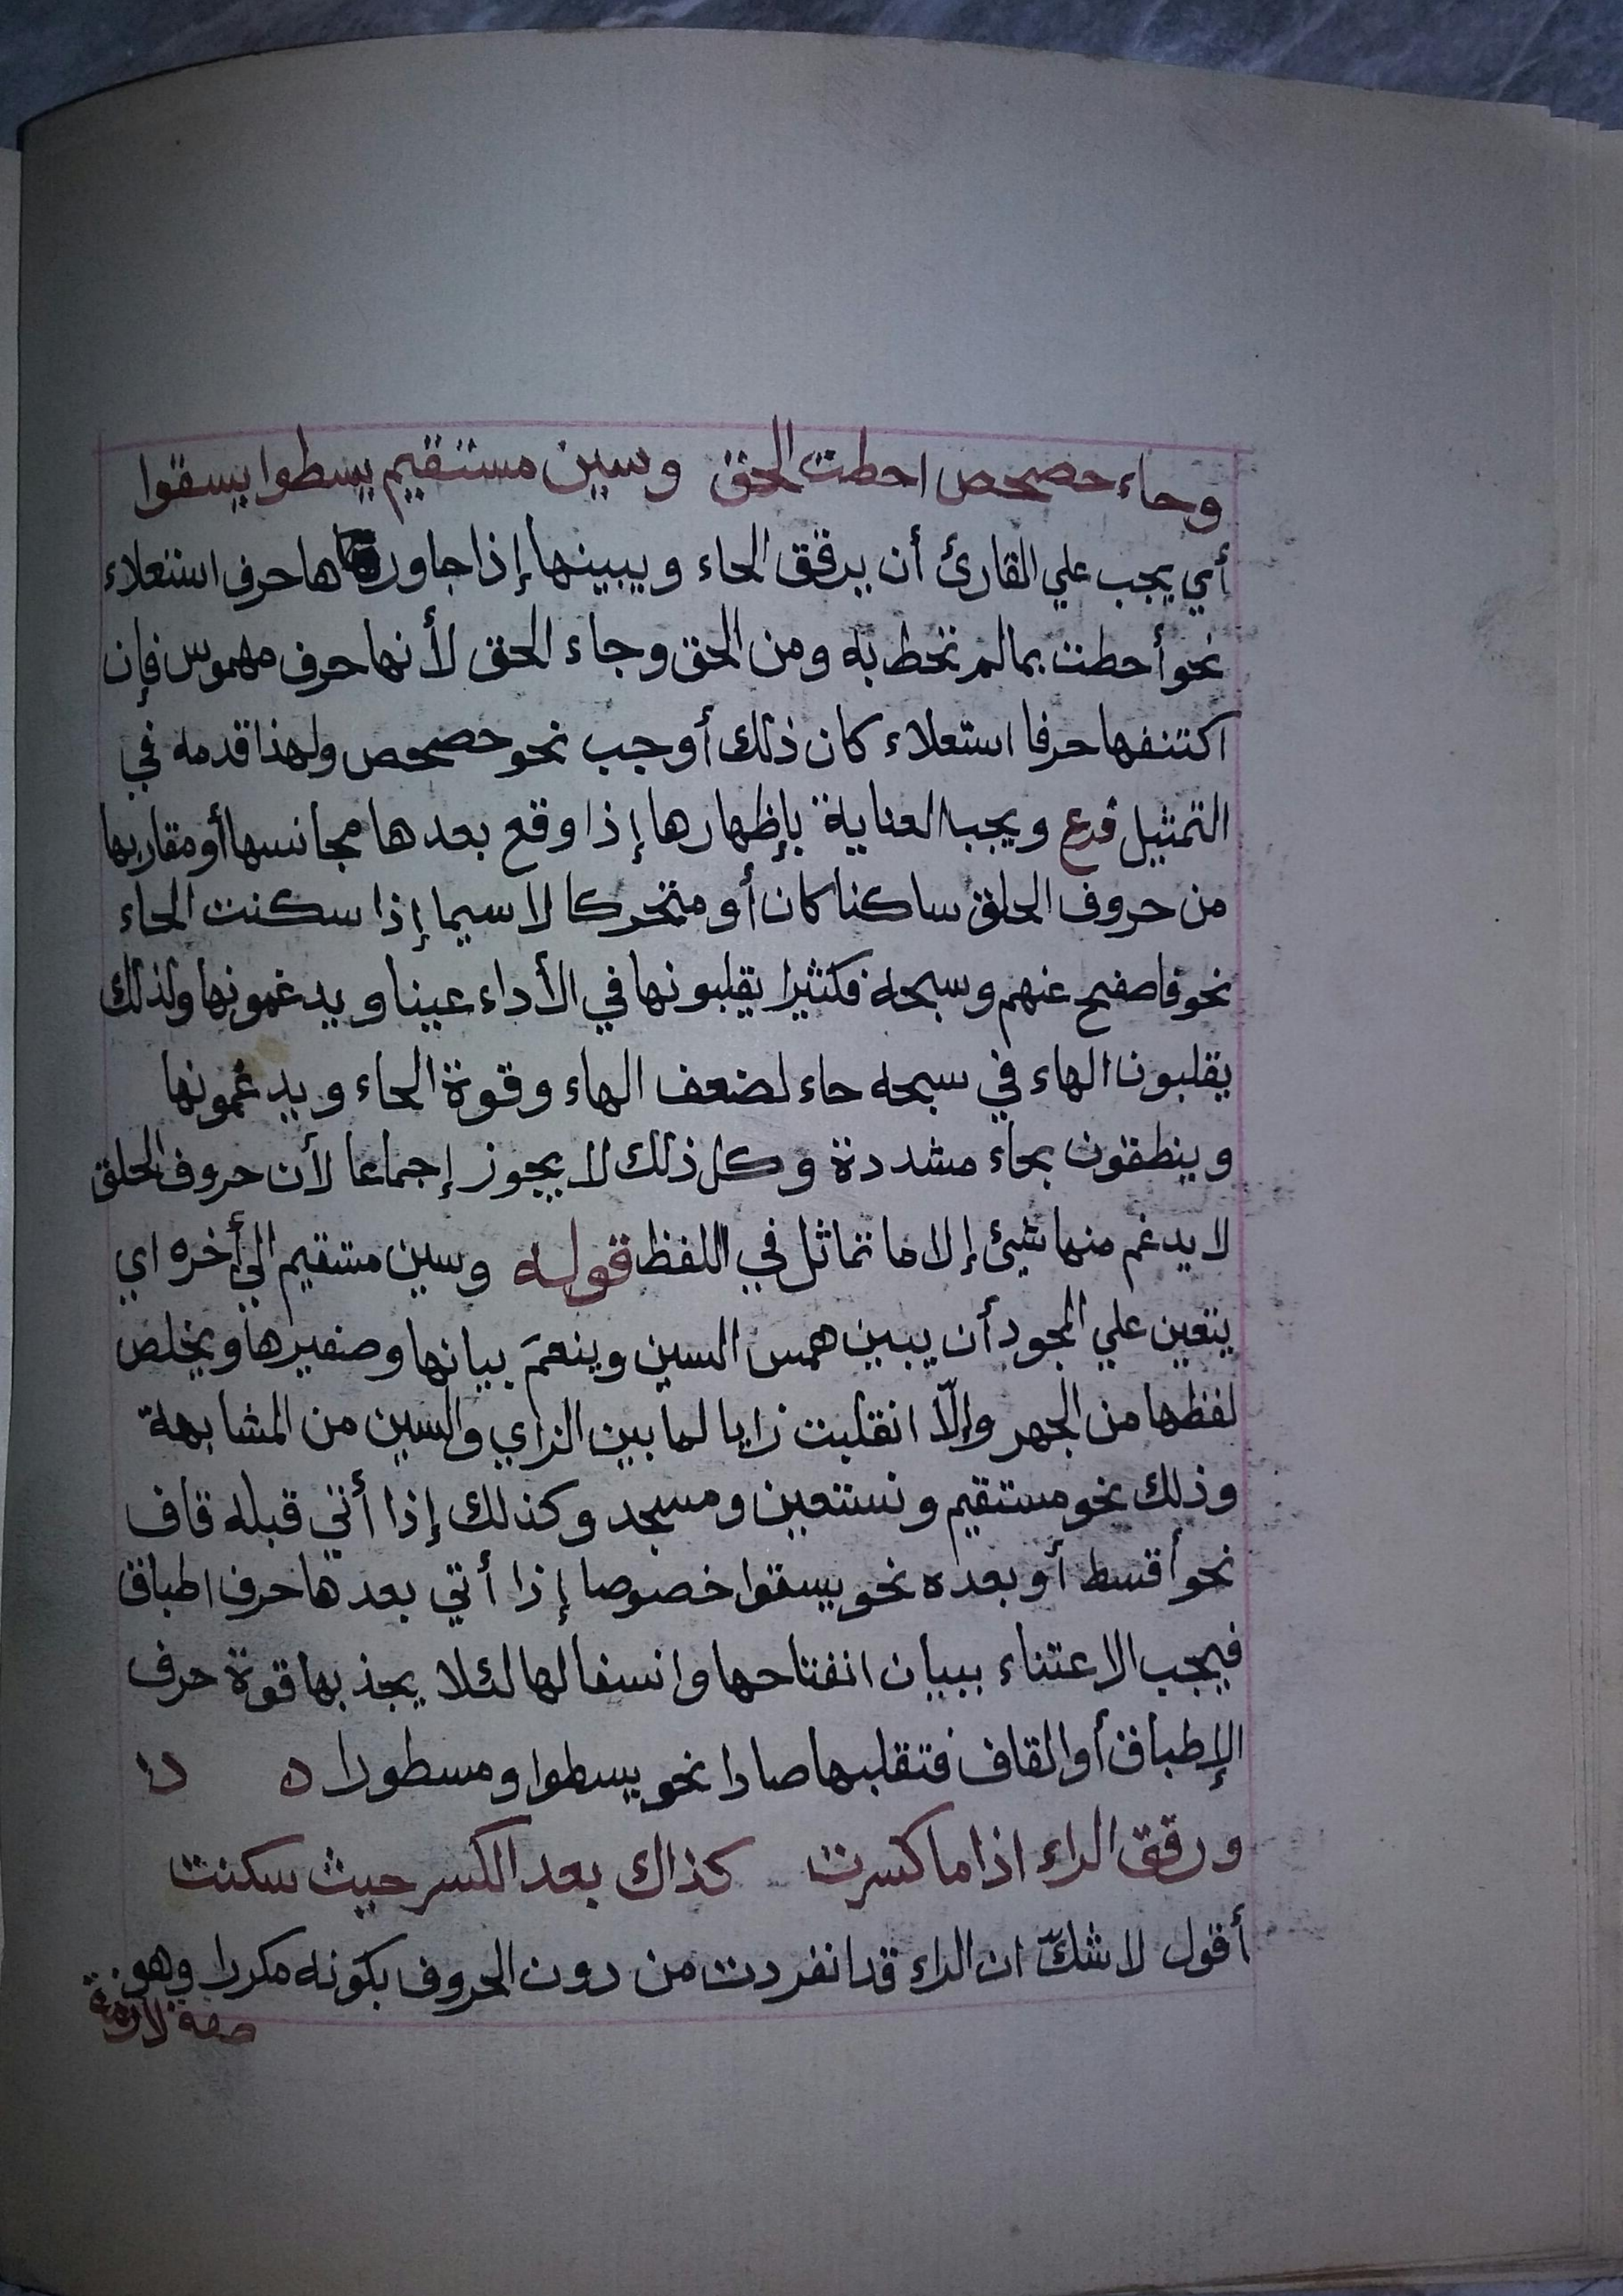 وحاء حصحص احطت الحق وسين مستقيم يسطوا يسقوا
أي يجب علي القارئ أن يرقق الحاء ويبينها إذا جاورها حرف استعلاء
نحو أحطت بما لم تحط به ومن الحق وجاء الحق لأنها حرف مهموس فإن
اكتنفها حرفا استعلاء كان ذلك أوجب نحو حصحص ولهذا قدمه في
التمثيل فرع ويجب العناية بإظهارها إذا وقع بعدها مجانسها أو مقاربها
من حروف الحلق ساكنا كان أو متحركا لا سيما إذا سكنت الحاء
نحو فاصفح عنهم وسبحه فكثيرا يقلبونها في الأداء عينا ويدغمونها ولذلك
يقلبون الهاء في سبحه حاء لضعف الهاء وقوة الحاء ويدغمونها
وينطقون بحاء مشددة وكل ذلك لا يجوز إجماعا لأن حروف الحلق
لا يدغم منها شيئ إلا ما تماثل في اللفظ قوله وسين مستقيم الي أخره اي
يتعين علي المجود أن يبين همس السين وينعم بيانها وصفيرها ويخلص
لفظها من الجهر وإلّا انقلبت زايا لما بين الزاي والسين من المشابهة
وذلك نحو مستقيم ونستعين ومسجد وكذلك إذا أتي قبله قاف
نحو أقسط أو بعده نحو يسقوا خصوصا إذا أتي بعدها حرف اطباق
فيجب الاعتناء ببيان انفتاحها وانسفالها لئلا يجذبها قوة حرف
الإطباق أو القاف فتقلبها صادا نحو يسطوا ومسطورا
ورقق الراء اذا ما كسرت كذاك بعد الكسر حيث سكنت
أقول لا شكّ ان الراء قد انفردت من دون الحروف بكونه مكررا وهو
صفة لازمة